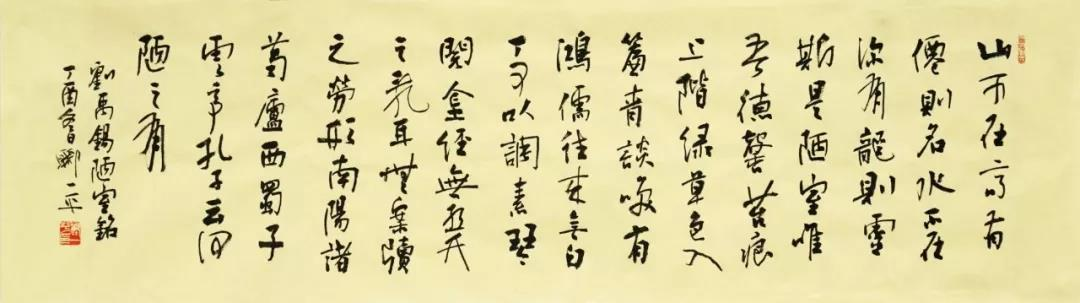 山不在高有
僊則名水不在
深有龍則靈
斯是陋室唯
吾德馨苔痕
上階緑草色入
簾青談咲有
鴻儒往来无白
丁可以調素琴
閱金經無絲竹
之亂耳無案牘
之勞形南陽諸
葛廬西蜀子
雲亭孔子云何
陋之有
劉禹錫陋室銘
丁酉